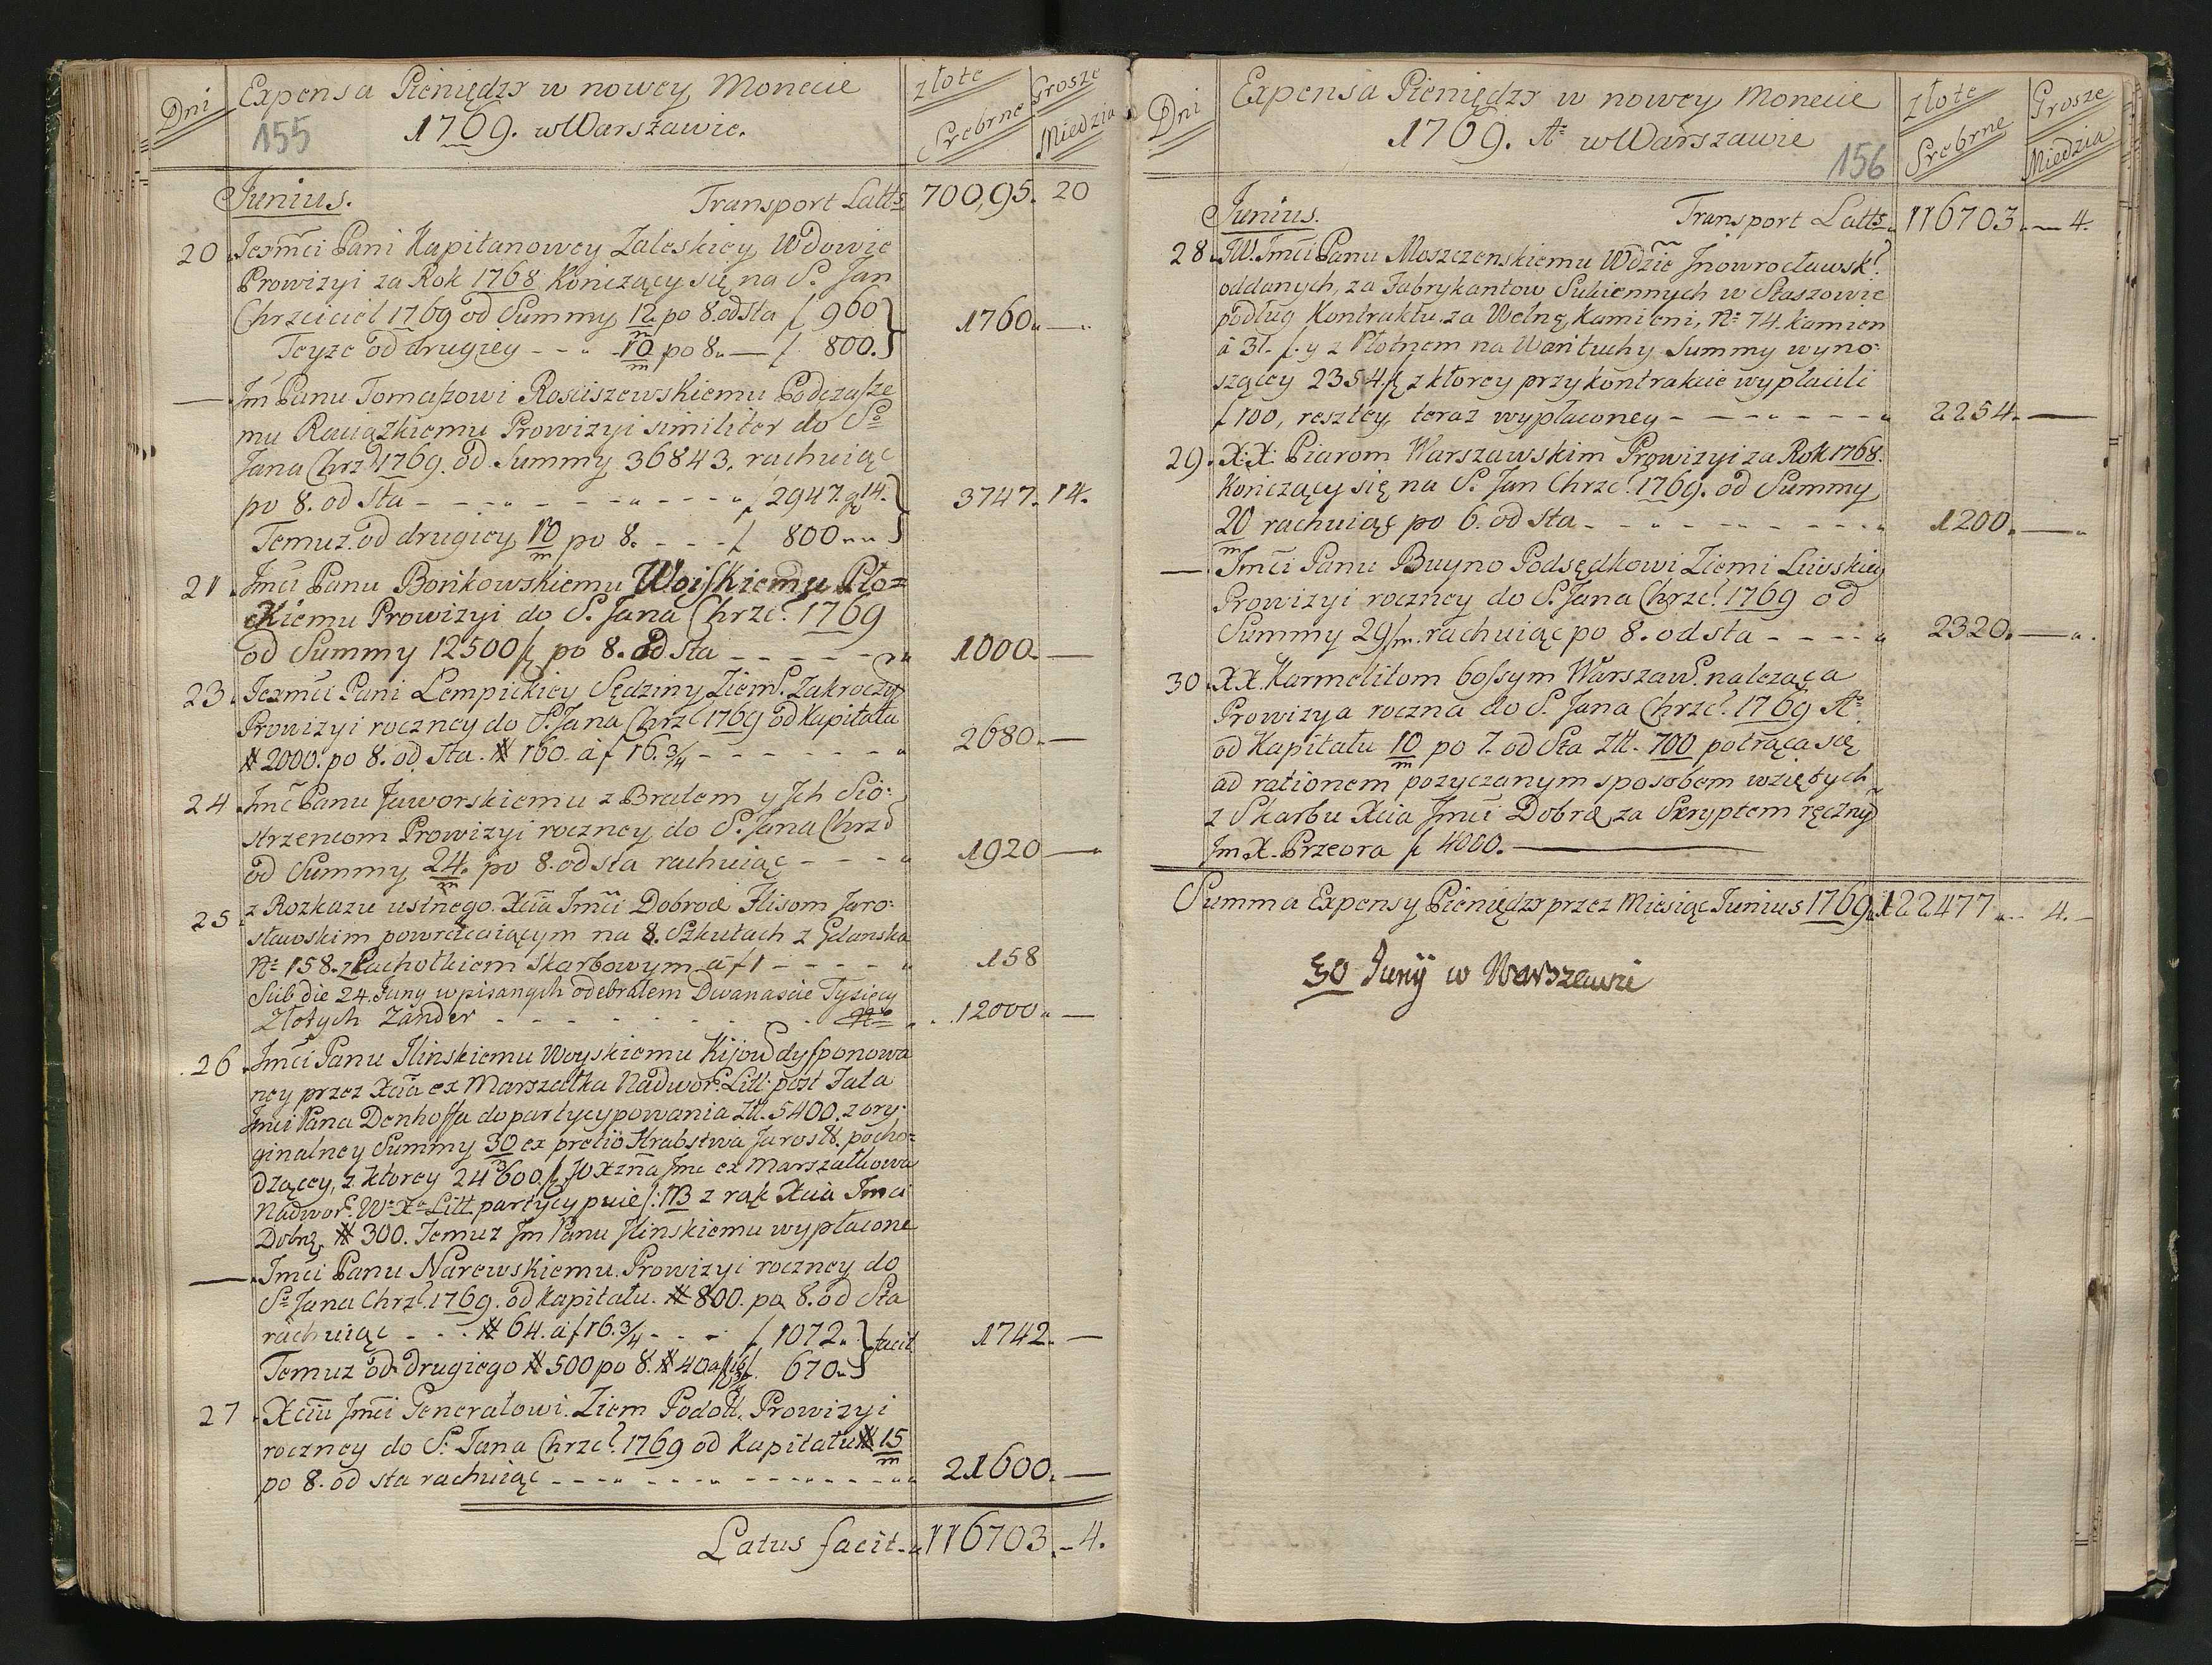 Dni
Expensa Pieniędzy w nowey Monecie
1769. w Warszawie.
155
złote
Srebrne
Grosze
Miedzia
Junius.
Transport Latts. 700,95. 20
20. Jeymci Pani Kapitanowey Zaleskiey, Wdowie
Prowizyi za Rok 1768 Kończący się na S. Jan
Chrzciciel 1769 od Summy 12/m po 8. od sta ƒ 960
1760. —
Teyże od drugiey - - - 10/m po 8. — ƒ 800.
— Jm Panu Tomaszowi Rosciszewskiemu Podczasze
mu Rawiązkiemu Prowizyi similiter do So
Jana Chrz. 1769. od Summy 36843. rachuiąc
po 8. od sta - - - - - - - ƒ 2947. g 14.
3747. 14.
Temuż od drugiey 10/m po 8. - - - ƒ 800
21. Jmci Panu Bońkowskiemu Woiskiemu Pło=
ckiemu Prowizyi do S. Jana Chrzc. 1769
od Summy 12500 ƒ po 8. od sta - - - - - 1000. —
23. Jeymci Pani Lempickiey Sędziny Ziems. Zakroczy
Prowizyi roczney do S. Jana Chrzc 1769 od Kapitału
# 2000. po 8. od sta. # 160. à ƒ 16. 3/4 - - - - - - 2680. —
24. Jmc Panu Jaworskiemu z Bratem y Jch Sio-
strzencom Prowizyi roczney do S. Jana Chrzc
od Summy 24/m. po 8. od sta rachuiąc - - - 1920 —
25. z Rozkazu ustnego Xcia Jmci Dobrod Flisom Jaro-
sławskim powracaiącym na 8. Szkutach z Gdanska
No 158. z Pachołkiem skarbowym à ƒ 1 - - - - 158
Sub die 24. Juny wpisanych odebrałem Dwanascie Tysięcy
Złotych Zander - - - - - - - - - 12000. —
26. Jmci Panu Ilinskiemu Woyskiemu Kijow dysponowa
ney przez Xcia ex Marszałka Nadwor. Litt. post Fata
Jmci Pana Denhoffa do partycypowania Ztt. 5400. z ory-
ginalney Summy 30/m ex pretio Hrabstwa Jarosł. pocho=
dzącey, z ktorey 24600 ƒ JO Xzna Jmc ex Marszałkowa
Nadwor. W. X. Litt. partycypuie /: NB z rąk Xcia Jmci
Dobrą, # 300. Temuż Jm Panu Ilinskiemu wypłacone
— Jmci Panu Narewskiemu Prowizyi roczney do
So Jana Chrzc. 1769. od Kapitału. # 800. po 8. od Sta
rachuiąc - - - # 64. à ƒ 16. 3/4 - - - ƒ 1072. facit 1742. —
Temuż od drugiego # 500 po 8. # 40 ƒ 670.
27. Xciu Jmci Generałowi Ziem Podoll. Prowizyi
roczney do S. Jana Chrzc. 1769 od Kapitału # 15/m
po 8. od sta rachuiąc - - - - - - - - - 21600. —
Latus facit 116703. — 4.
Dni
Expensa Pieniędzy w nowey Monecie
1769. Ao w Warszawie
156
złote
Srebrne
Grosze
Miedzia
Junius.
Transport Latts. 116703. — 4.
28. JW. Jmci Panu Moszczenskiemu Wdzie Jnowrocławsk.
oddanych, za Fabrykantow Sukiennych w Staszowie
podług Kontraktu za Wełnę, Kamieni, No 74. kamien
à 31. ƒ. y z Płotnem na Wańtuchy Summy wyno-
szącey 2354. ƒ z ktorey przy kontrakcie wypłacili
ƒ 100, resztey, teraz wypłaconey - - - - - - - 2254. —
29. X.X. Piarom Warszawskim Prowizyi za Rok 1768.
Kończący się na S. Jan Chrzc. 1769. od Summy
20/m rachuiąc po 6. od sta - - - - - - - 1200. —
— Jmci Panu Buyno Podsędkowi Ziemi Liwskiey
Prowizyi roczney do S. Jana Chrzc. 1769 od
Summy 29/m. rachuiąc po 8. od sta - - - - 2320. —
30. XX. Karmelitom bossym Warszaw. należąca
Prowizya roczna do S. Jana Chrzc. 1769 Ao
od Kapitału 10/m po 7. od Sta Ztt. 700 potrąca się
ad rationem pożyczanym sposobem wziętych
z Skarbu Xcia Jmci Dobrd, za Skryptem ręczny
Jm X. Przeora ƒ 4000. —
Summa Expensy Pieniędzy przez Miesiąc Junius 1769. 122477. — 4. —
30 Junij w Warszawie